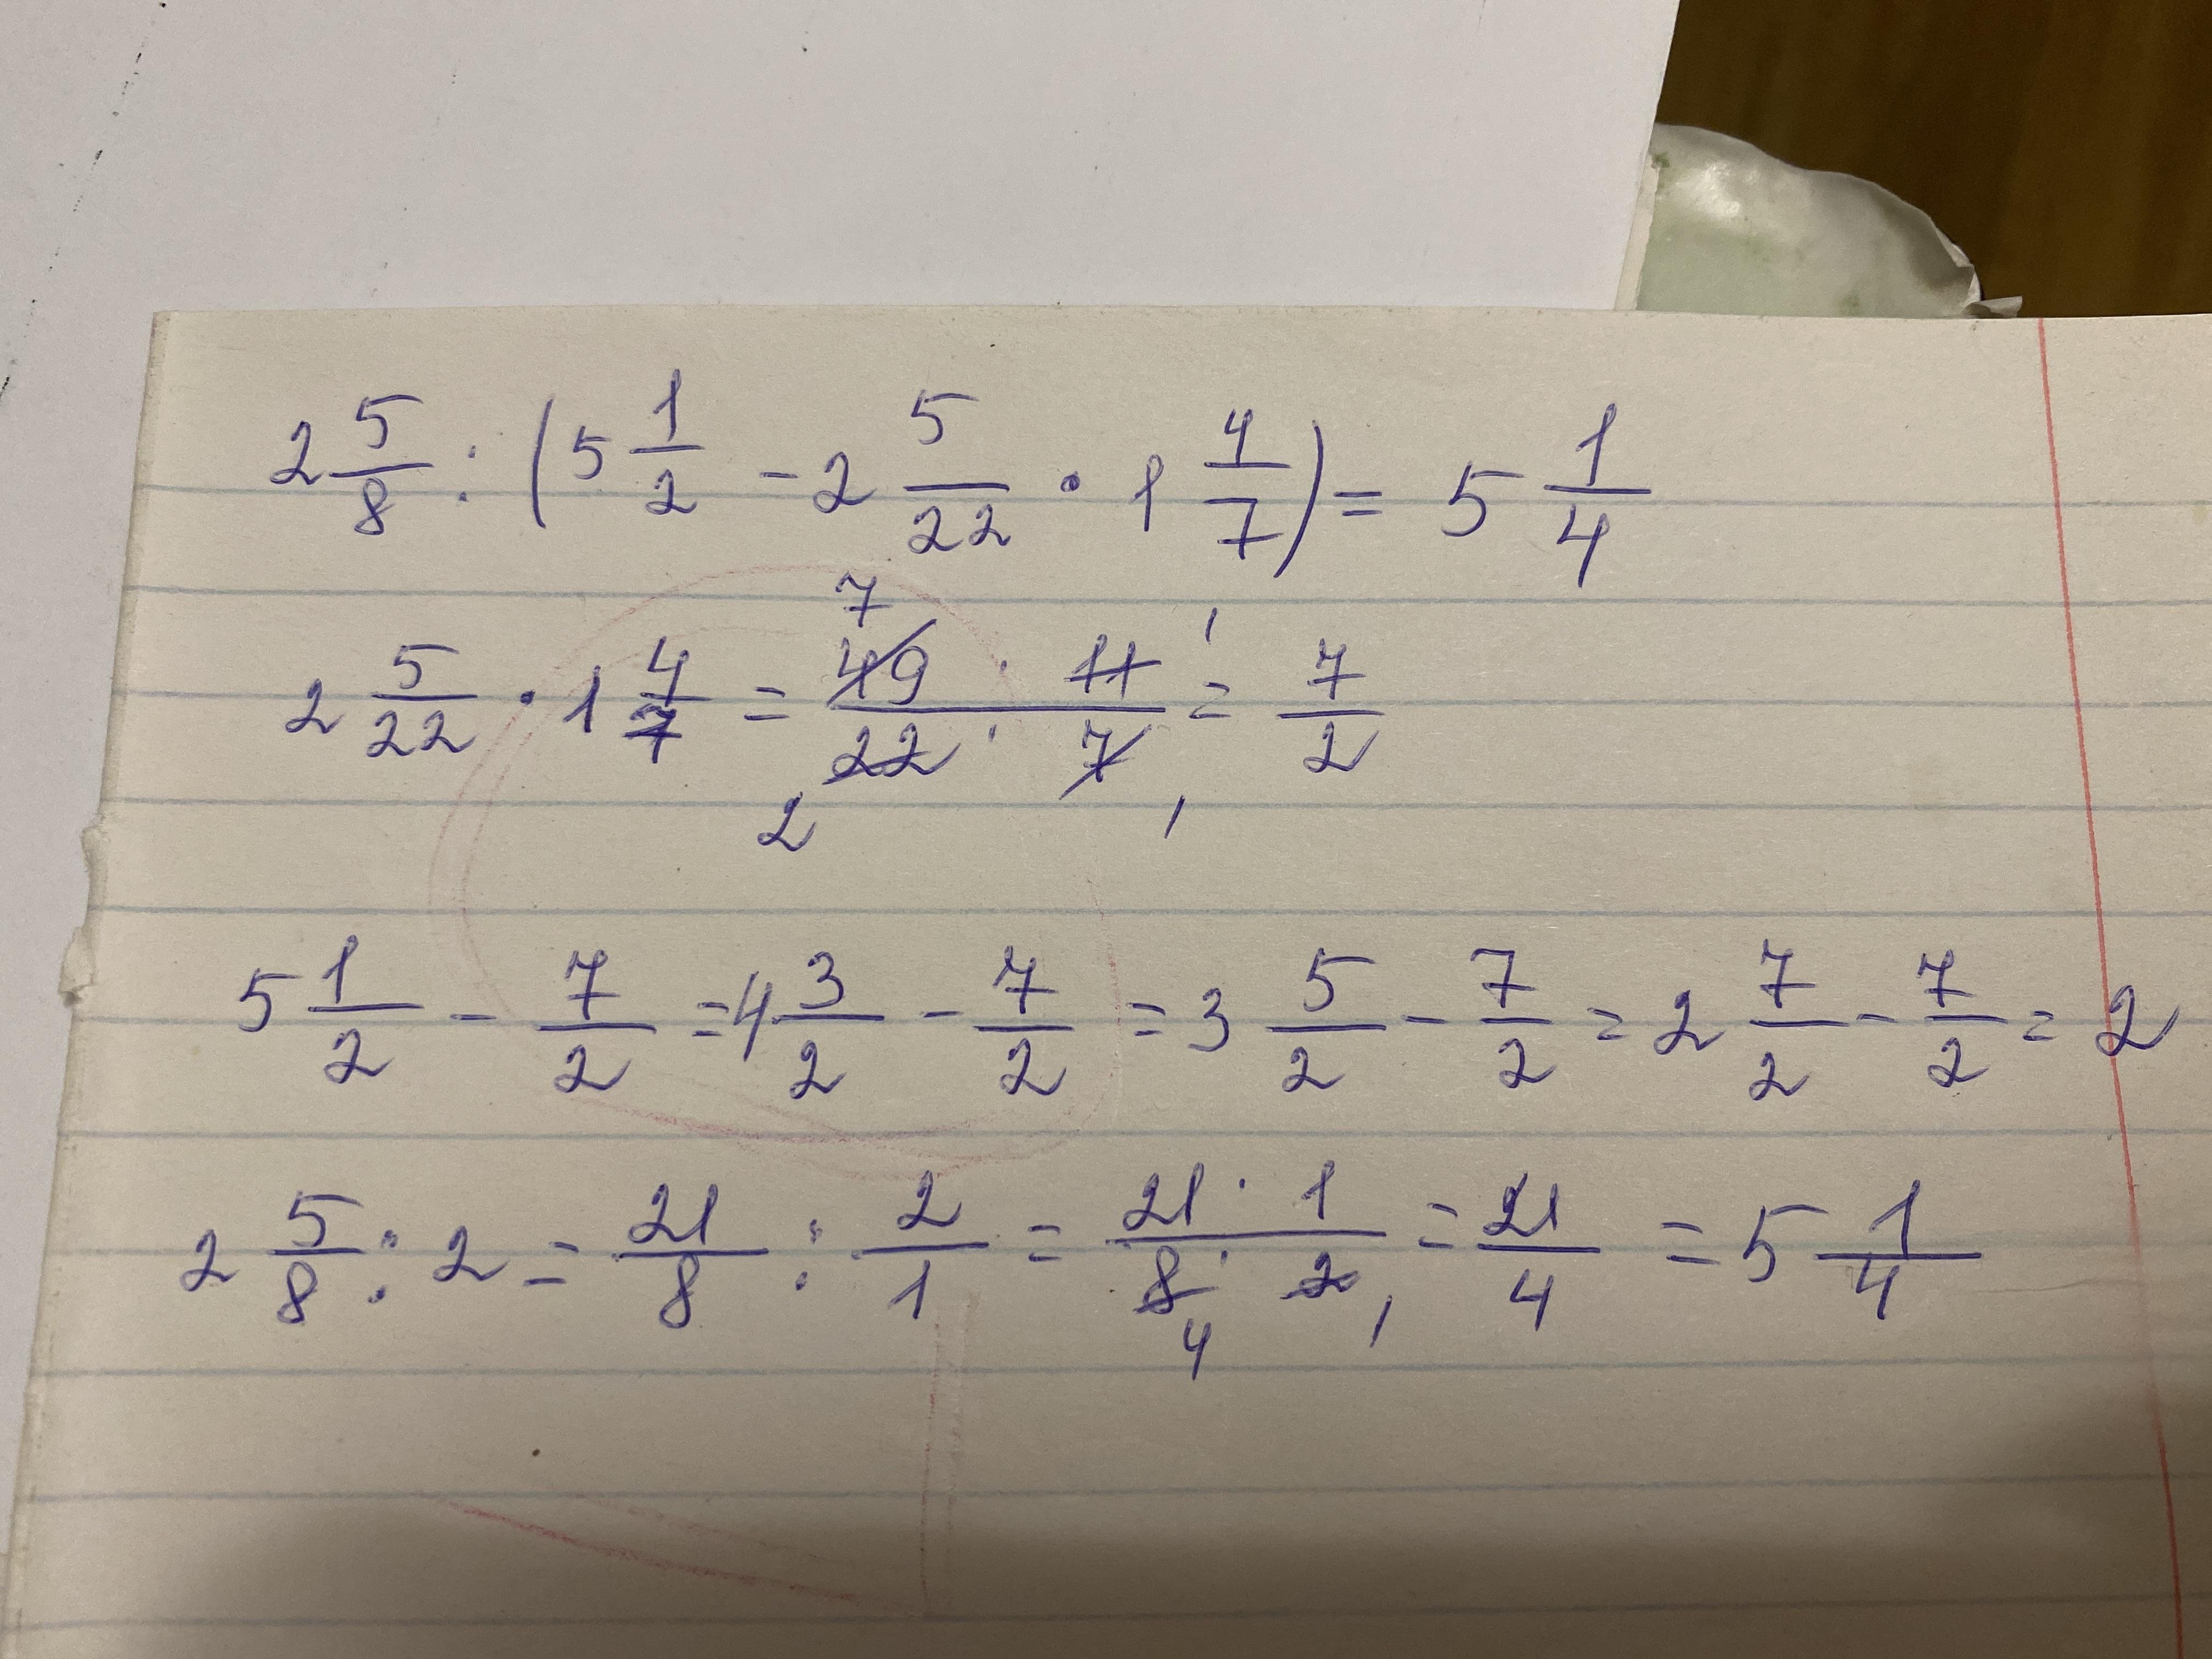 2 5/8 : (5 1/2 - 2 5/22 · 1 4/7) = 5 1/4
2 5/22 · 1 4/7 = 49 · 11 / 22 · 7 = 7/2
5 1/2 - 7/2 = 4 3/2 - 7/2 = 3 5/2 - 7/2 = 2 7/2 - 7/2 = 2
2 5/8 : 2 = 21/8 : 2/1 = 21 · 1 / 8 · 2 = 21/4 = 5 1/4